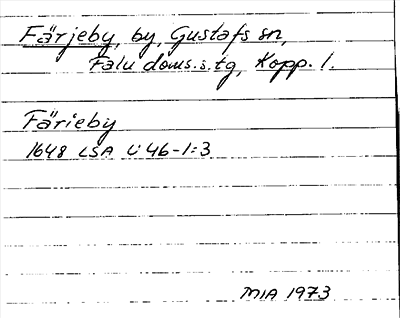 Färjeby, by, Gustafs sn,
Falu doms.s. tg, Kopp. l.
Färieby
1648 LSA U 46-1:3
MIA 1973